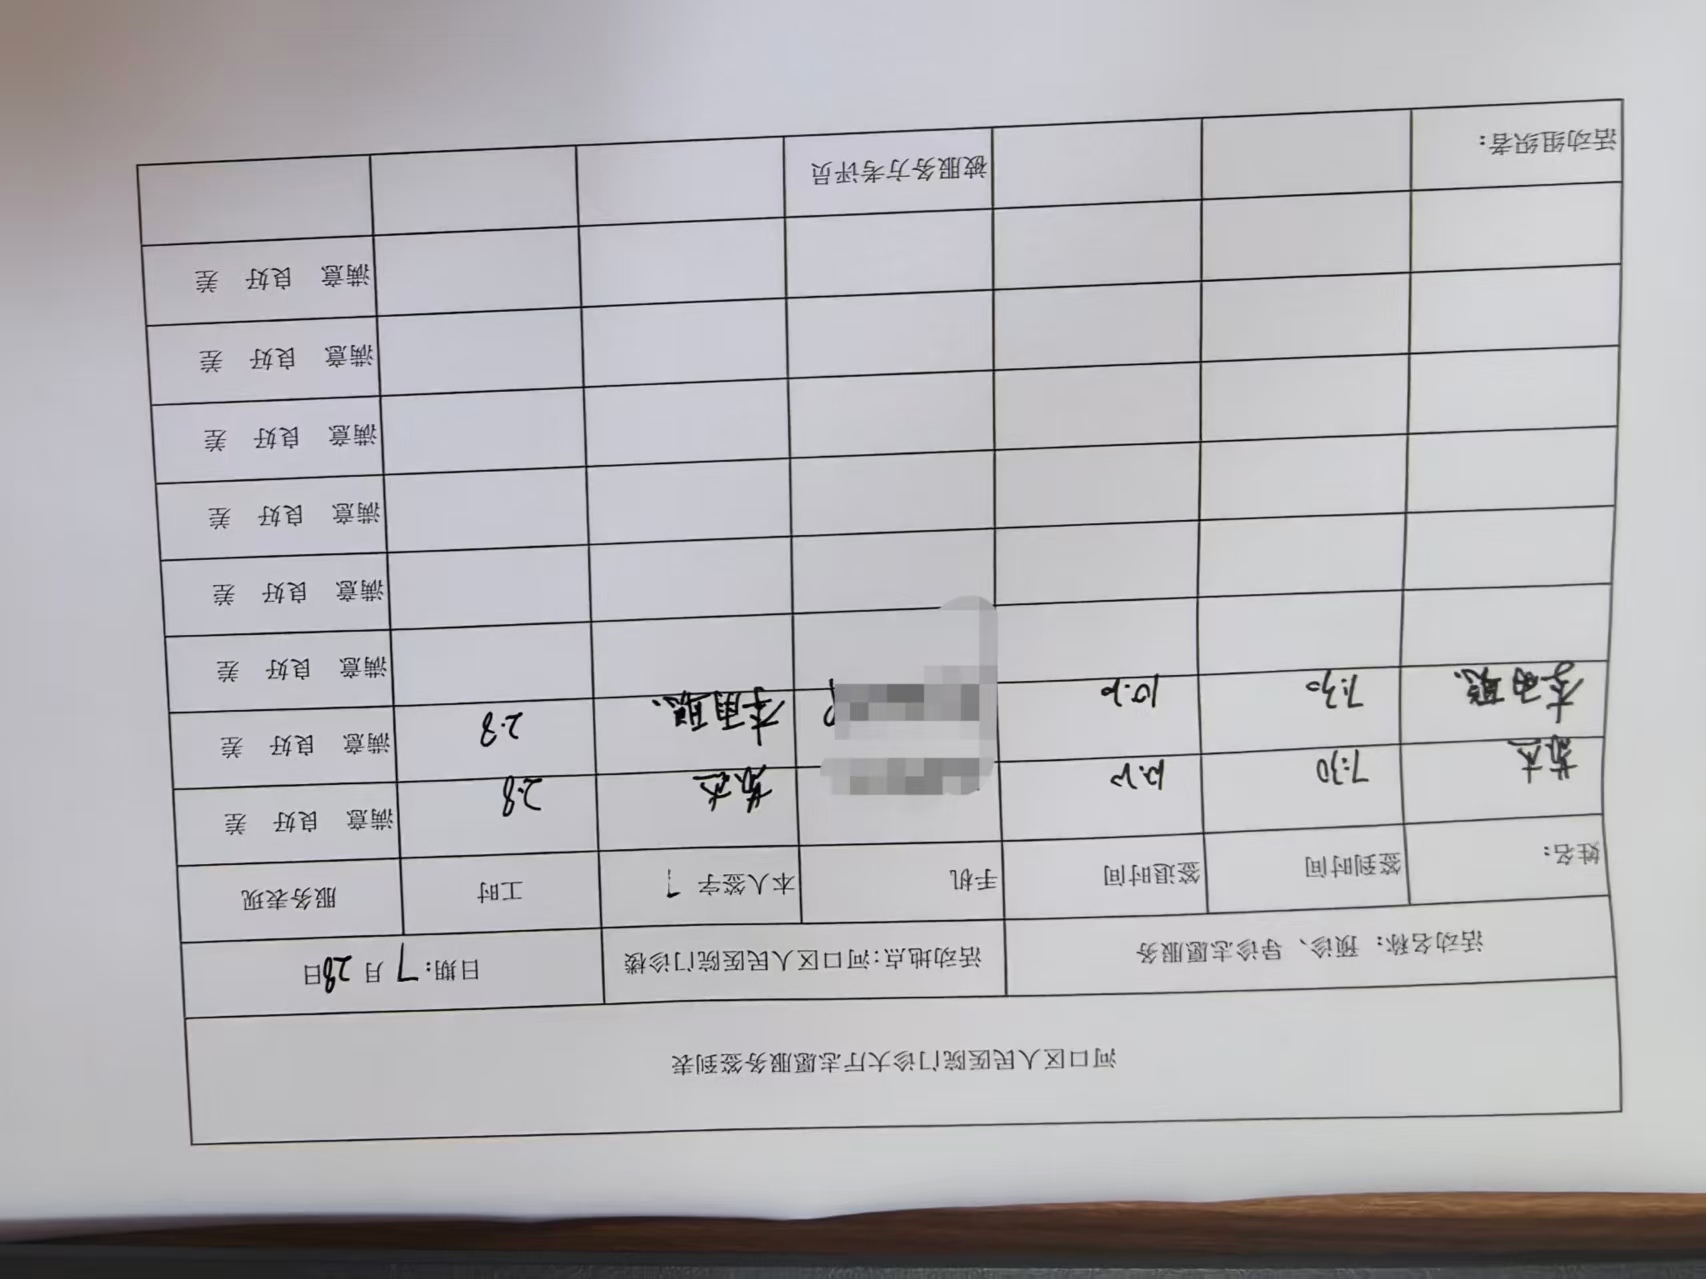 河口区人民医院门诊大厅志愿服务签到表
活动名称：预诊、导诊志愿服务 活动地点：河口区人民医院门诊楼 日期：7月28日
姓名： 签到时间 签退时间 手机 本人签字 工时 服务表现
7:30 2.8 满意 良好 差
7:30 2.8 满意 良好 差
满意 良好 差
满意 良好 差
满意 良好 差
满意 良好 差
满意 良好 差
满意 良好 差
活动组织者： 被服务方考评员